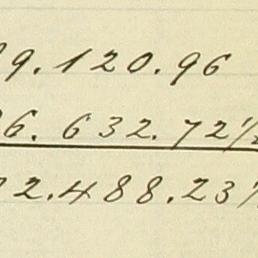 9.120.96
6.632.72½
2.488.23